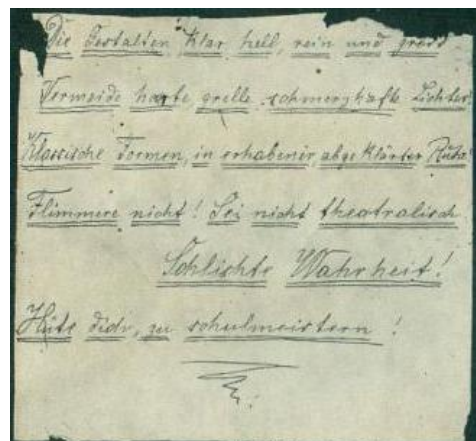 Die Gestalten, klar hell, rein und gross
Vermeide harte, grelle schmerzhafte Lichter
Klassische Formen, in erhabener, abgeklärter Ruhe!
Flimmere nicht! Sei nicht theatralisch
Schlichte Wahrheit!
Hüte dich, zu schulmeistern!